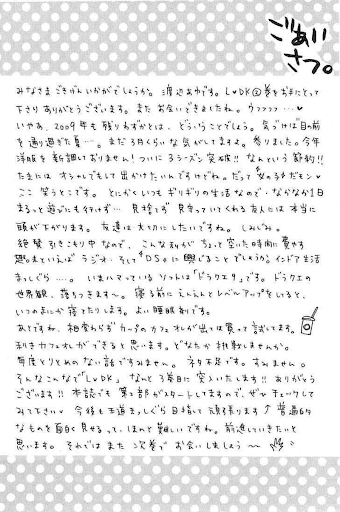 ごあい
さつ。
みなさまごきげんいかがでしょうか。渡辺あゆです。L♥DK②巻をお手にとって
下さりありがとうございます。またお会いできましたね。ウフフフフ…♥
いやぁ、2009年も残りわずかとは、どういうことでしょう。気づけば目の前
を通り過ぎた夏…。まだ3月くらいな気がしてますよ。参りました。今年
洋服を新調しておりません!ついに3シーズン突破!!なんという節約!!
たまにはオシャレでもして出かけたいんですけどね。だって女のコだモン♥
ここ笑うとこです。とにかくいつもギリギリの生活なので・なかなか1日
まるっと遊びにも行けず…見捨てず見守っていてくれる友人には本当に
頭が下がります。友達は大切にしたいですね。しみじみ。
絶賛引きこもり中なので、こんな私がちょっと空いた時間に費やす
趣味といえばラジオ、そしてDSに興じることでしょうか。インドア生活
まっしぐら……。いまハマっているソフトは「ドラクエ9」です。ドラクエの
世界観、落ちつきます〜。寝る前にえんえんとレベルアップをしていると、
いつの間にか寝てたりします。よい睡眠剤です。
あとですね、相変わらずカップのカフェオレが出ては買って試してます。
利きカフェオレができると思います。どなたか挑戦しませんか。
毎度とりとめのない話ですみません。ネタ不足です。すみません。
そんなこんなで「L♥DK」なんと3巻目に突入いたします!!ありがとう
ございます!!本誌でも第2部がスタートしてますので、ぜひチェックして
みて下さい♥今後も王道まっしぐら目指して頑張ります♪普通的
なものを面白く見せるって、ほんと難しいですね。前進していきたいと
思います。それではまた次巻でお会いしましょう〜